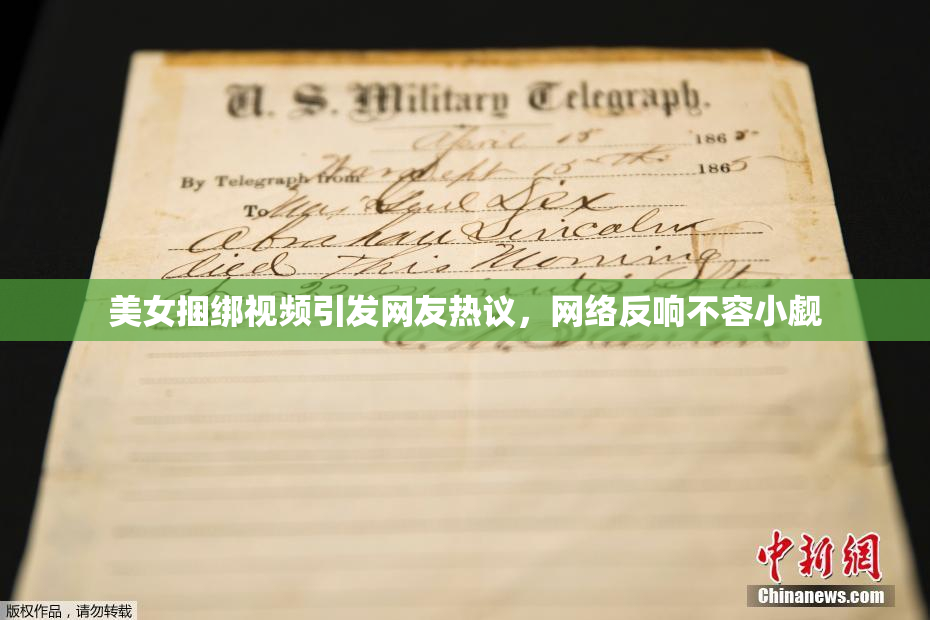 U. S. Military Telegraph.
April 15 1865
By Telegraph from War Dept 15th 1865
To Maj Genl Dix
Abraham Lincoln
died This Morning
22 minutes after
美女捆绑视频引发网友热议，网络反响不容小觑
中新网
Chinanews.com
版权作品，请勿转载